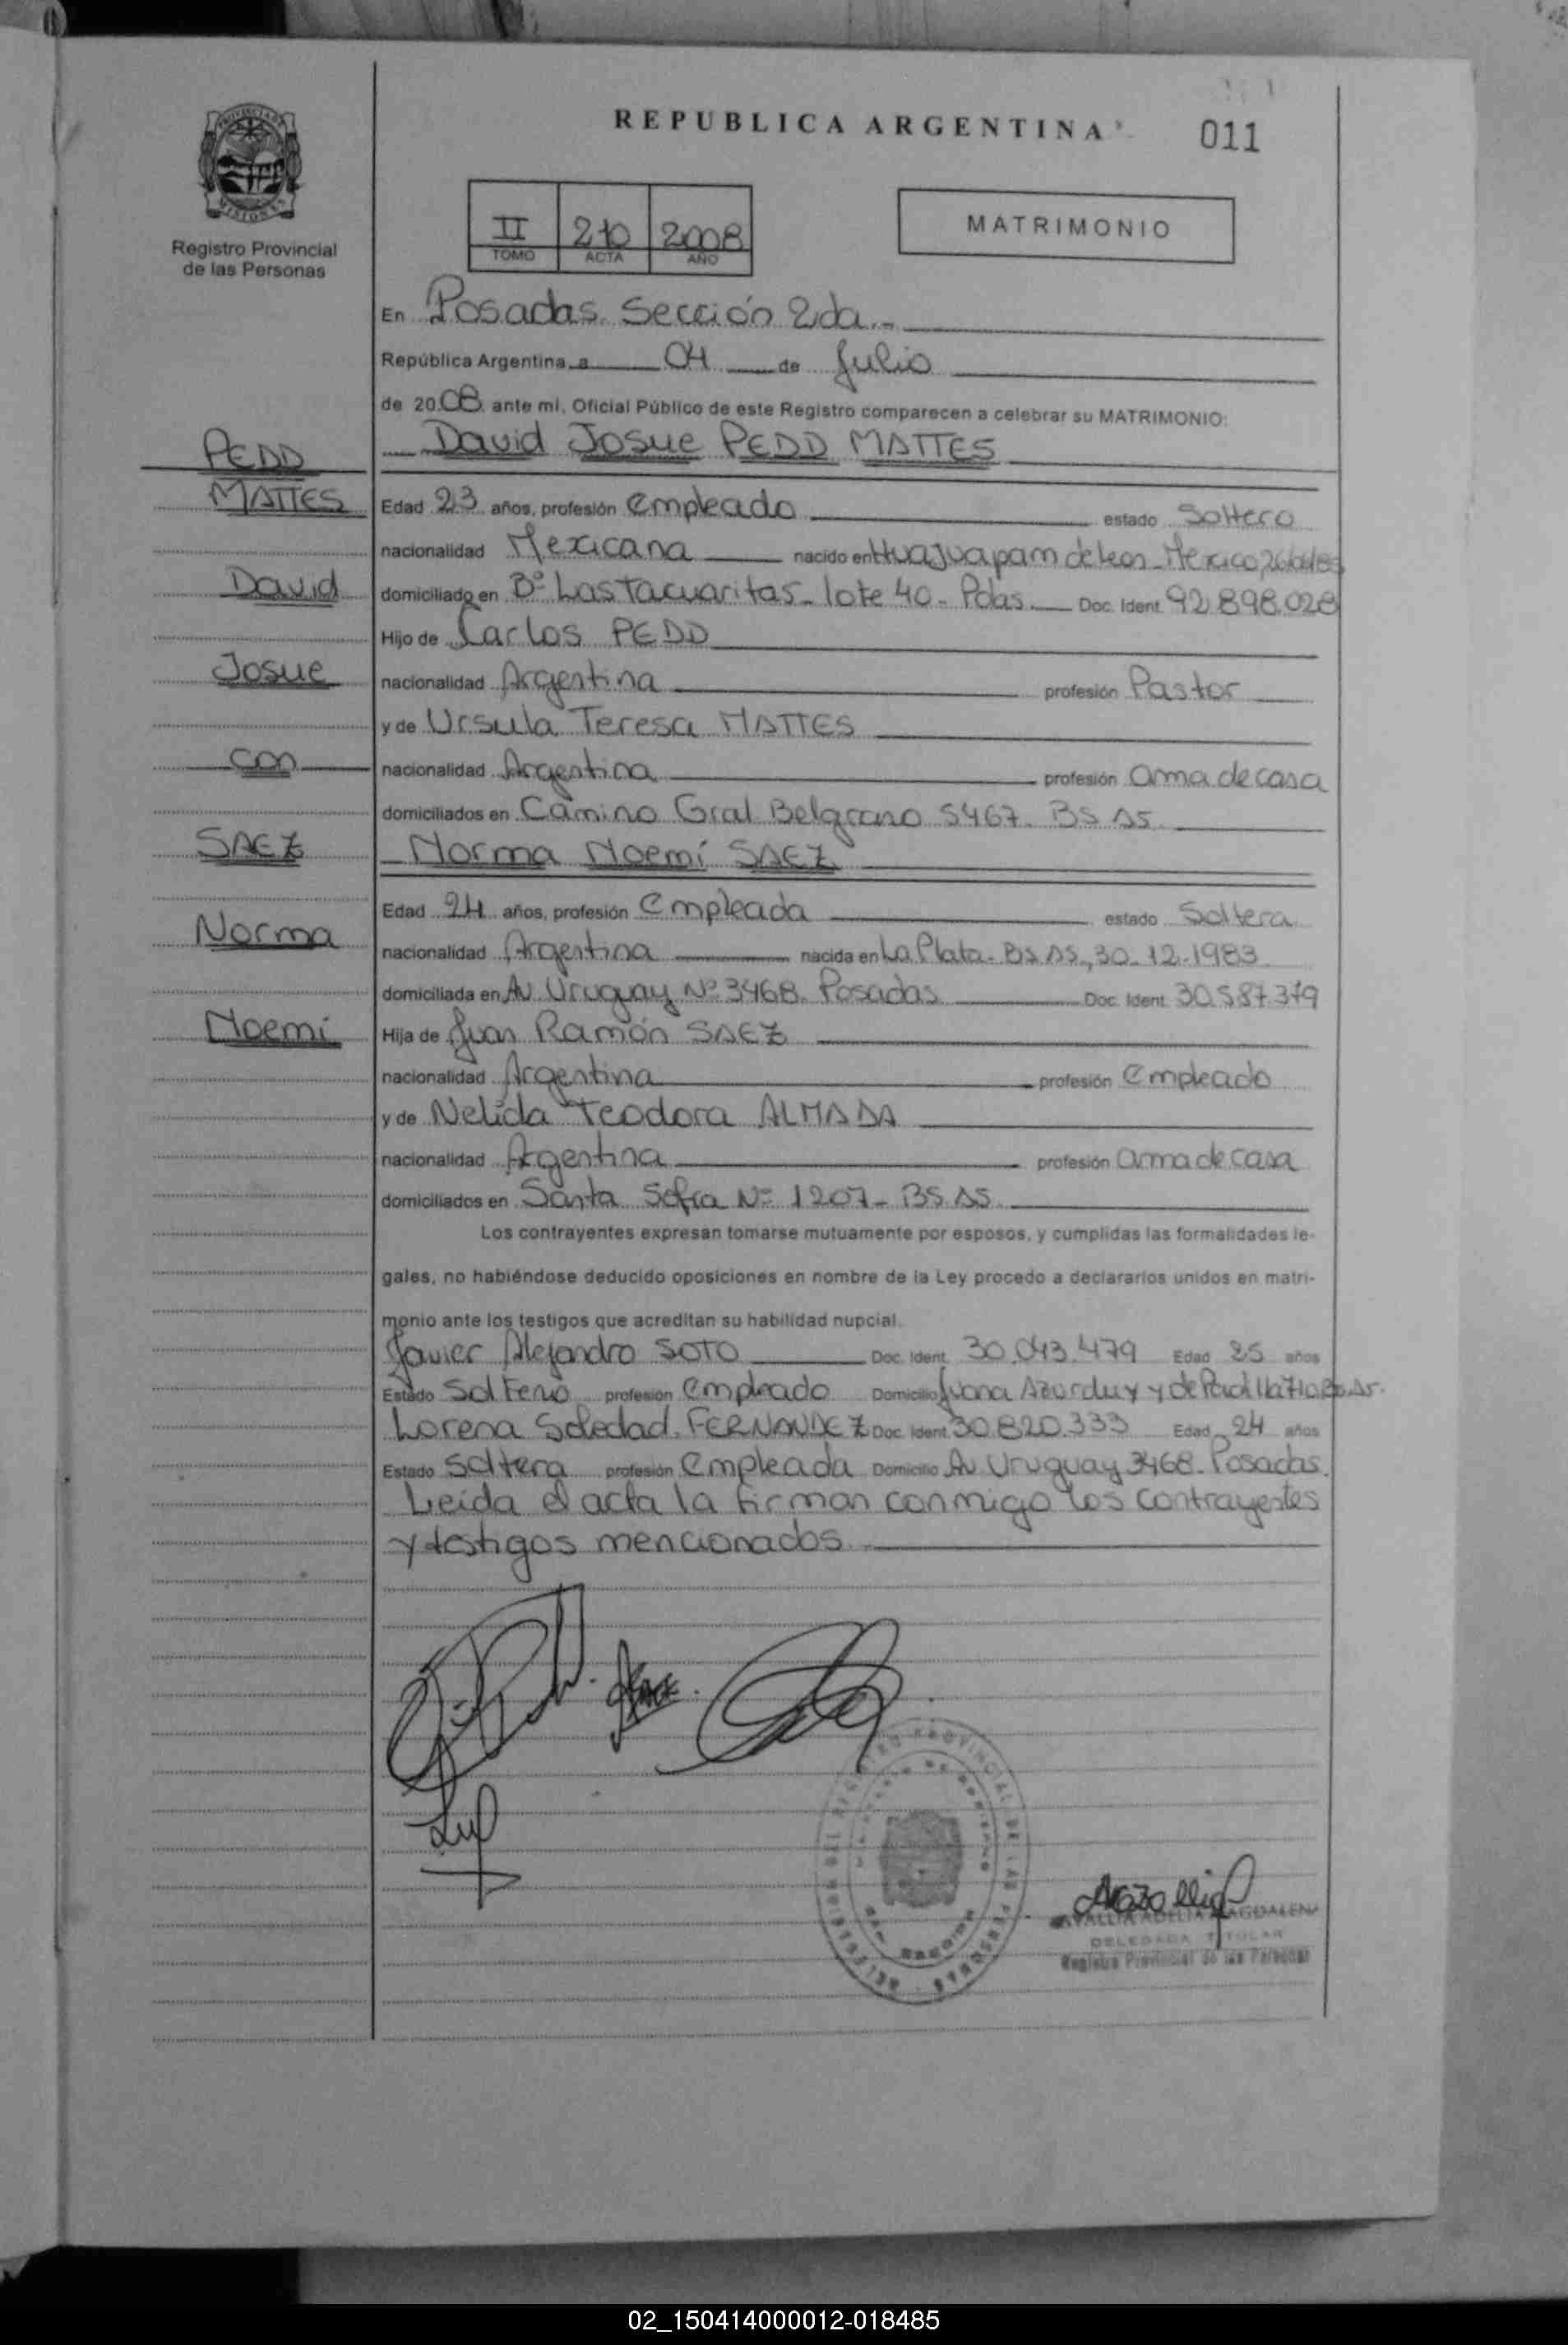 REPUBLICA ARGENTINA
011
PROVINCIA DE
MISIONES
Registro Provincial
de las Personas
II 210 2008
TOMO ACTA AÑO
MATRIMONIO
En Posadas. Sección 2da.-
República Argentina a 04 de Julio
de 2008 ante mi, Oficial Público de este Registro comparecen a celebrar su MATRIMONIO:
David Josue PEDD MATTES
PEDD
MATTES
David
Josue
con
SAEZ
Norma
Noemí
Edad 23 años, profesión empleado estado Soltero
nacionalidad Mexicana nacido en Huajuapam de Leon - Mexico,
domiciliado en Bº Las Tacuaritas - lote 40 - Pdas. Doc. Ident. 92.898.028
Hijo de Carlos PEDD
nacionalidad Argentina profesión Pastor
y de Ursula Teresa MATTES
nacionalidad Argentina profesión ama de casa
domiciliados en Camino Gral Belgrano 5467. BS AS.
Norma Noemí SAEZ
Edad 24 años, profesión Empleada estado Soltera
nacionalidad Argentina nacida en La Plata - Bs As., 30-12-1983
domiciliada en Av. Uruguay Nº 3468. Posadas Doc. Ident. 30.587.379
Hija de Juan Ramón SAEZ
nacionalidad Argentina profesión Empleado
y de Nelida Teodora ALMADA
nacionalidad Argentina profesión ama de casa
domiciliados en Santa Sofía Nº 1207 - BS AS.
Los contrayentes expresan tomarse mutuamente por esposos, y cumplidas las formalidades le-
gales, no habiéndose deducido oposiciones en nombre de la Ley procedo a declararlos unidos en matri-
monio ante los testigos que acreditan su habilidad nupcial.
Javier Alejandro SOTO Doc. Ident. 30.043.479 Edad 25 años
Estado Soltero profesión empleado Domicilio Juana Azurduy y de Padilla Bs. As.
Lorena Soledad. FERNANDEZ Doc. Ident. 30.820.333 Edad 24 años
Estado Soltera profesión Empleada Domicilio Av. Uruguay 3468 - Posadas.
Leída el acta la firman conmigo los contrayentes
y testigos mencionados.
ADELIA MAGDALENA
DELEGADA TITULAR
Registro Provincial de las Personas
02_150414000012-018485